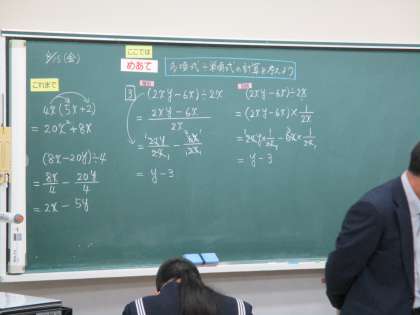 6/15(金)
ここでは
めあて
多項式÷単項式の計算を考えよう
これまで
4x(5x+2)
=20x²+8x
(8x-20y)÷4
=8x/4-20y/4
=2x-5y
3
(2xy-6x)÷2x
=2xy-6x/2x
=2xy/2x-6x/2x
=y-3
(2xy-6x)÷2x
=(2xy-6x)×1/2x
=2xy×1/2x-6x×1/2x
=y-3